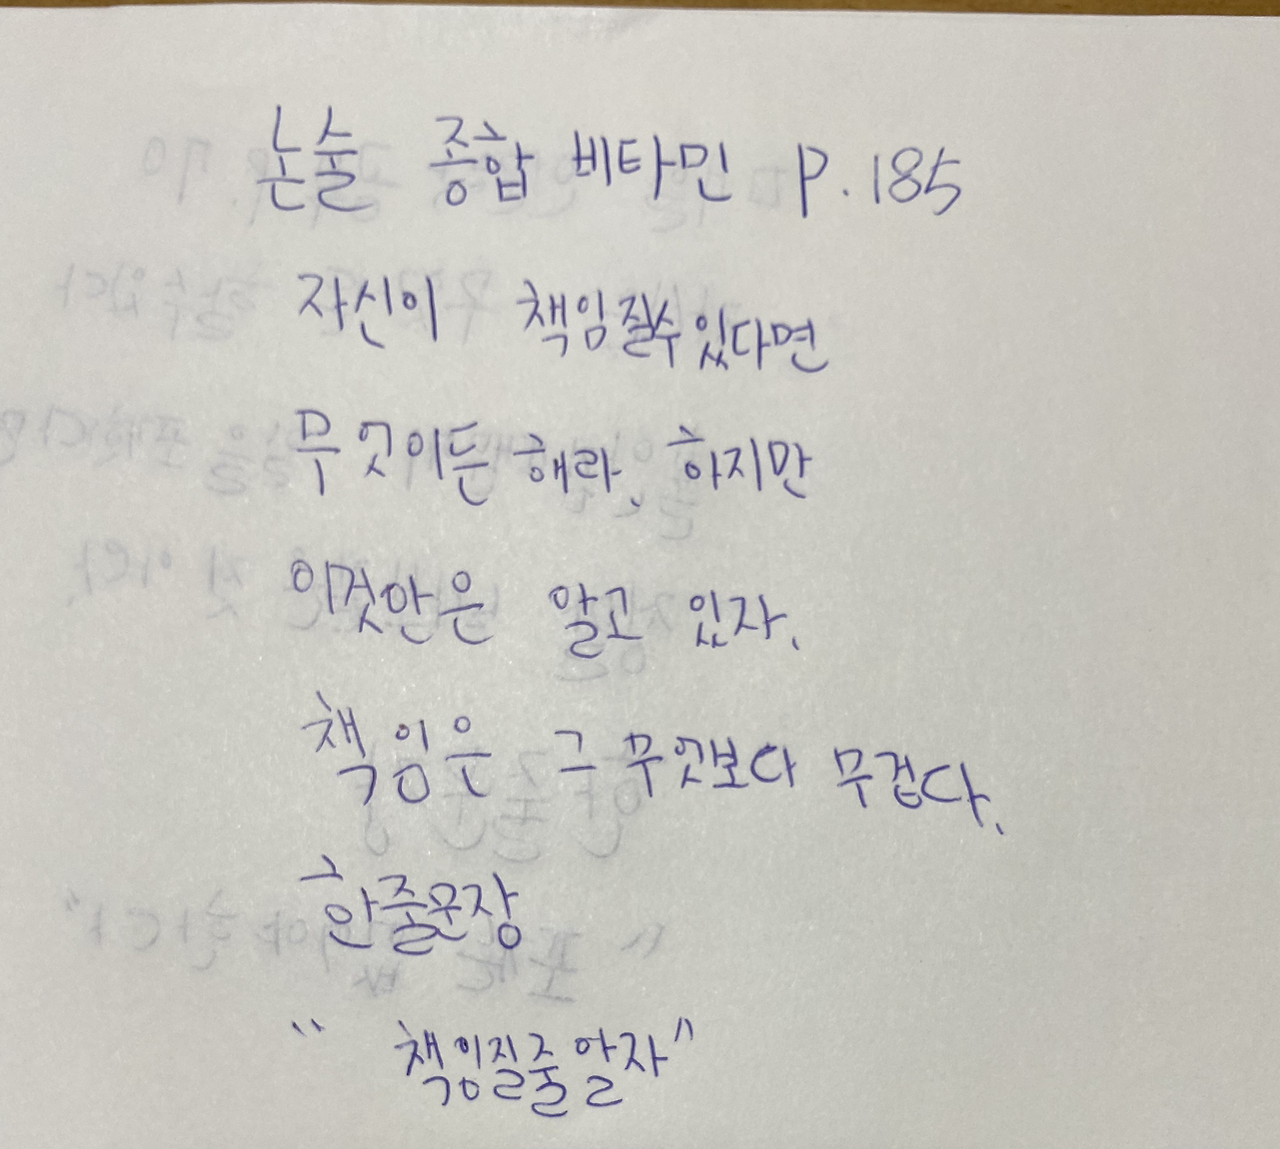 논술 종합 비타민 P.185
자신이 책임질수있다면
무엇이든 해라. 하지만
이것만은 알고 있자.
책임은 그 무엇보다 무겁다.
한줄문장
" 책임질줄 알자"